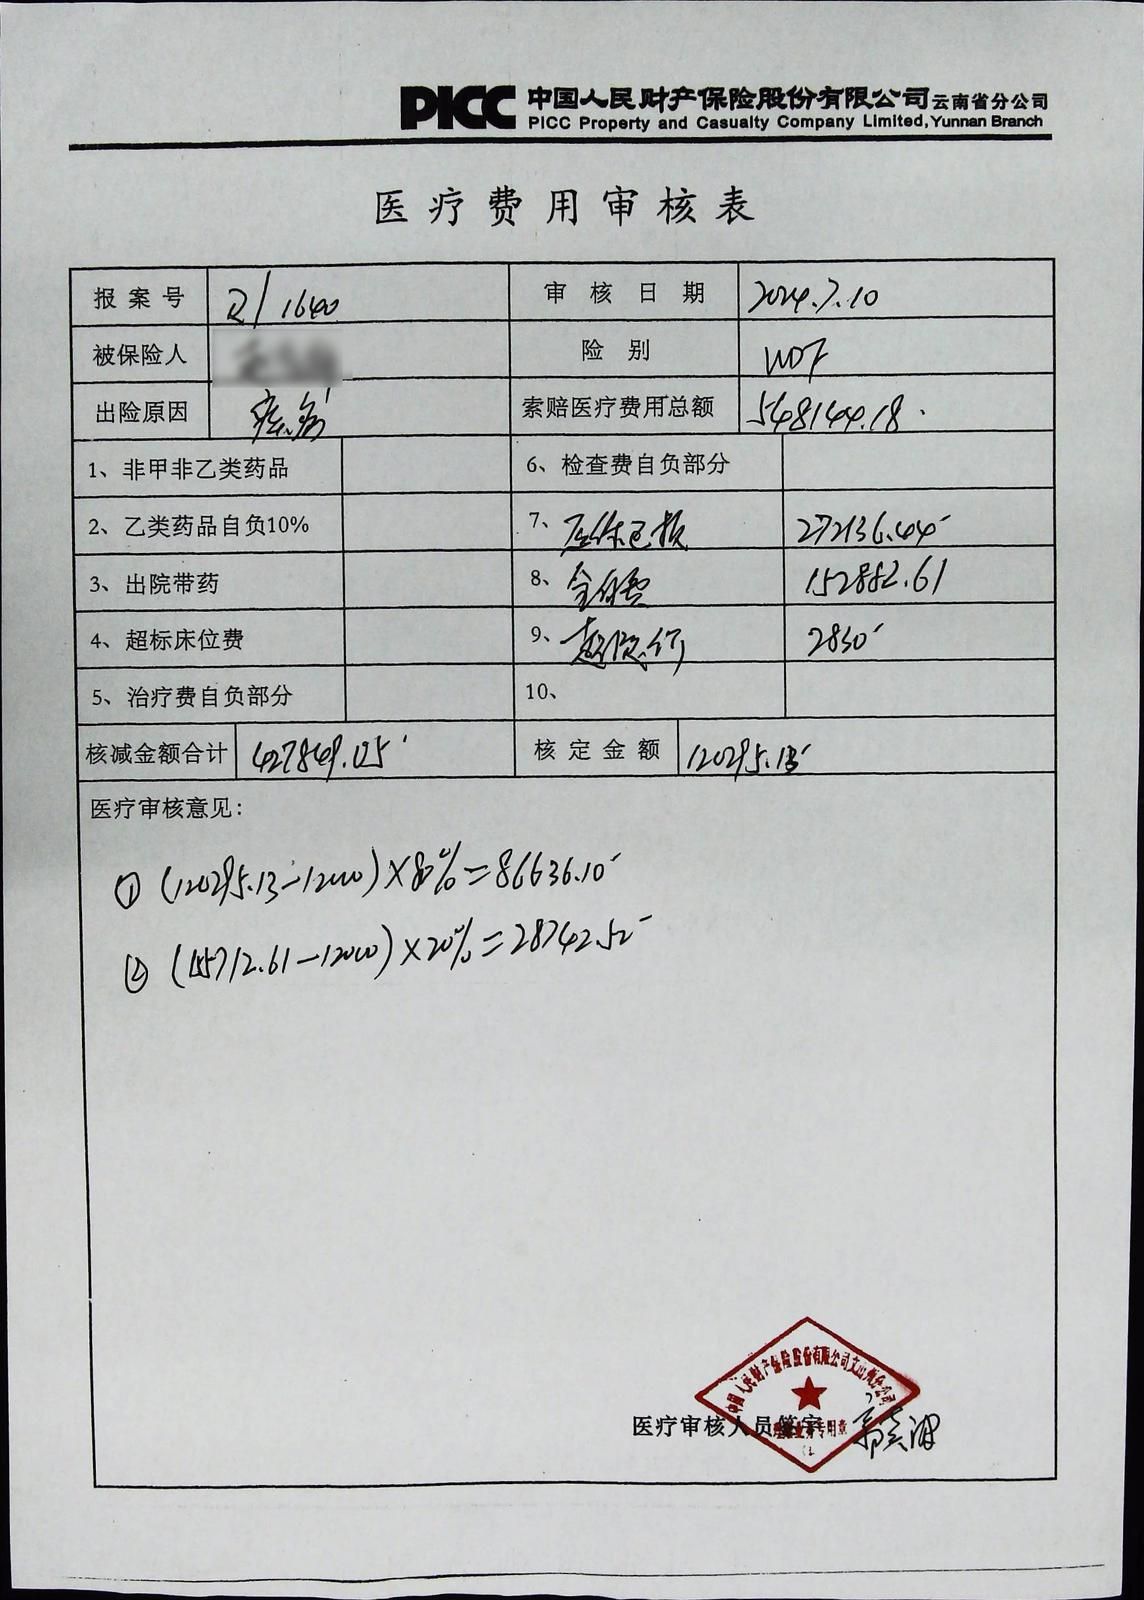 PICC 中国人民财产保险股份有限公司云南省分公司
PICC Property and Casualty Company Limited,Yunnan Branch
医疗费用审核表
报案号 21 1640 审核日期 2024.7.10
被保险人 险别 WDF
出险原因 疾病 索赔医疗费用总额 548144.18
1、非甲非乙类药品 6、检查费自负部分
2、乙类药品自负10% 7、医保已报 272136.44
3、出院带药 8、全自费 152882.61
4、超标床位费 9、超限价 2830
5、治疗费自负部分 10、
核减金额合计 427849.05 核定金额 120295.13
医疗审核意见:
① (120295.13-12000)×80%=86636.10
② (155712.61-12000)×20%=28742.52
中国人民财产保险股份有限公司文山州分公司
医疗审核人员签字:
理赔业务专用章